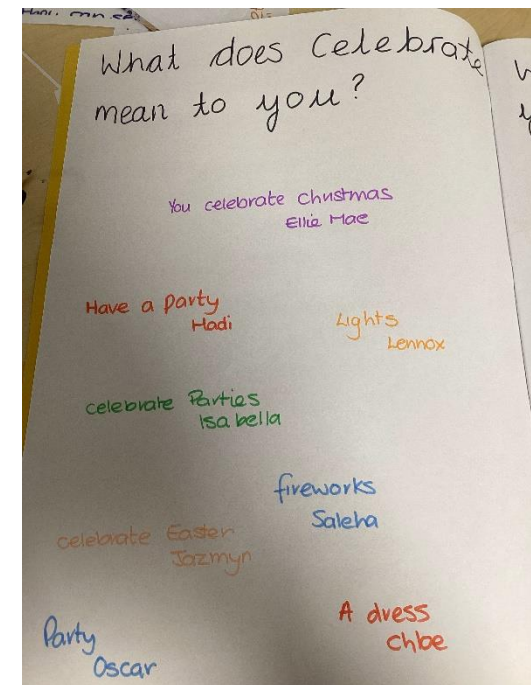 What does Celebrate
mean to you?
You celebrate Christmas
Ellie Mae
Have a party
Hadi
Lights
Lennox
celebrate Parties
Isabella
fireworks
Saleha
celebrate Easter
Jazmyn
A dress
Chloe
Party
Oscar